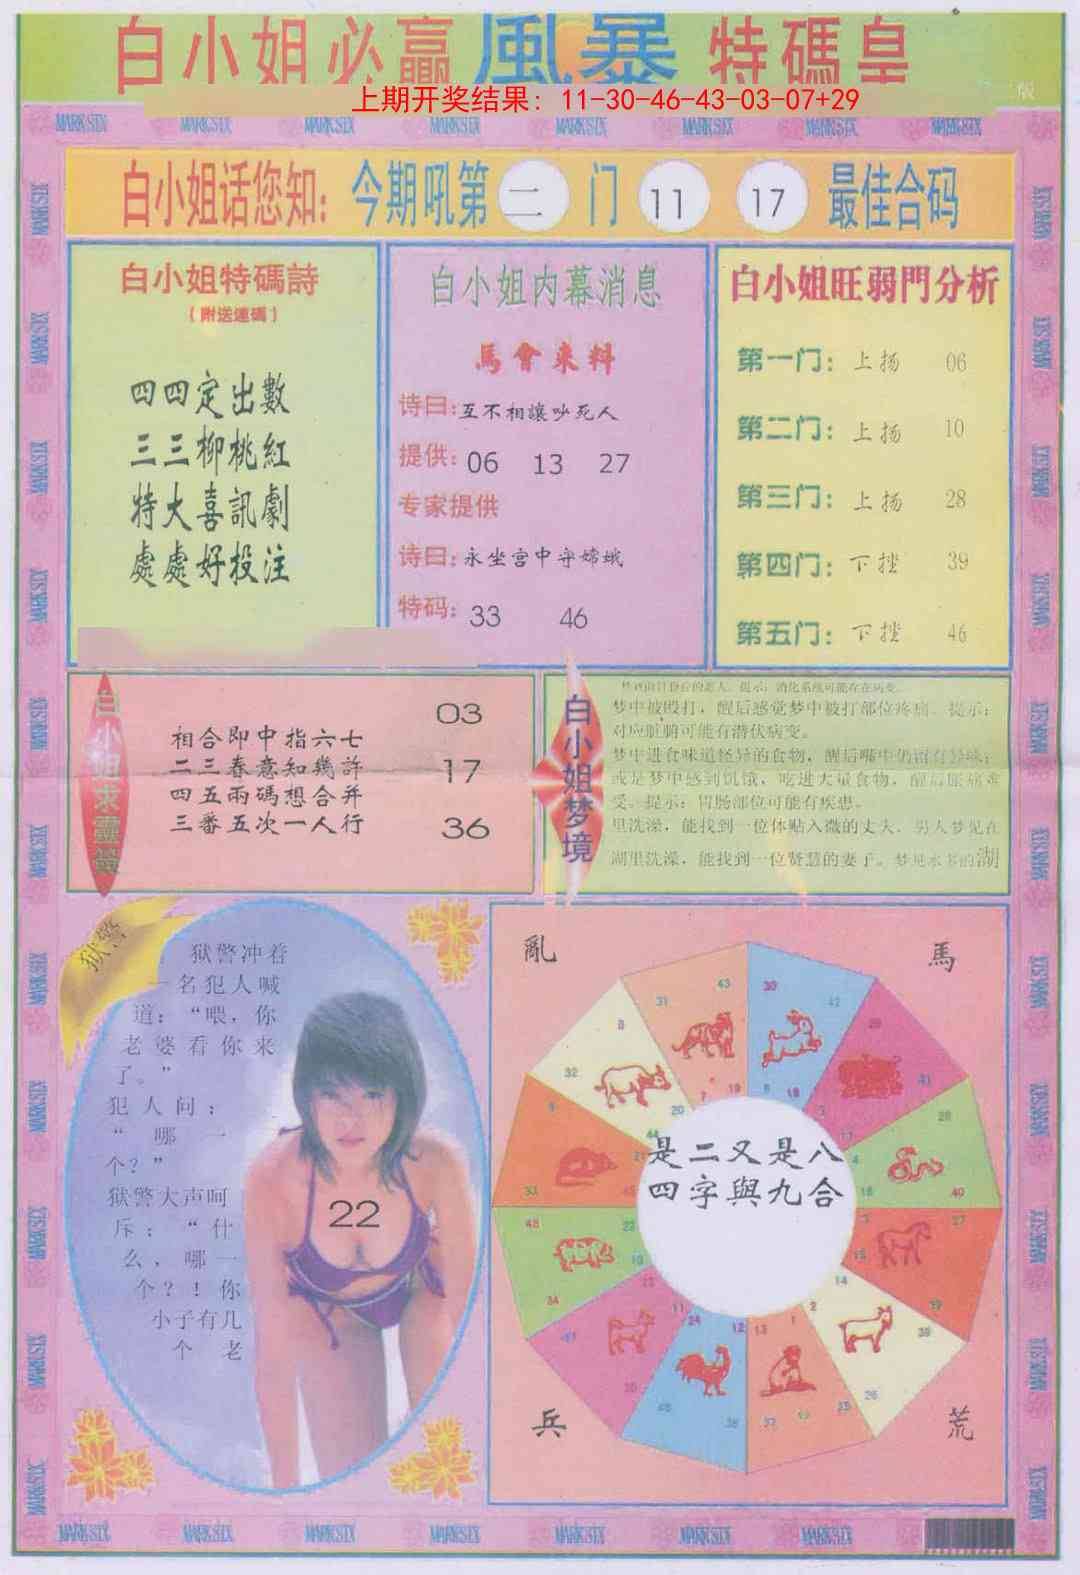 白小姐必贏風暴特碼皇
版
上期开奖结果：11-30-46-43-03-07+29
MARK SIX MARK SIX MARK SIX MARK SIX MARK SIX MARK SIX MARK SIX MARK SIX
白小姐话您知：今期吼第二门 11 17 最佳合码
白小姐特碼詩
(附送連碼)
四四定出數
三三柳桃紅
特大喜訊劇
處處好投注
白小姐内幕消息
馬會來料
诗曰：互不相讓吵死人
提供：06 13 27
专家提供
诗曰：永坐宫中守嫦娥
特码：33 46
白小姐旺弱門分析
第一门：上扬 06
第二门：上扬 10
第三门：上扬 28
第四门：下挫 39
第五门：下挫 46
白小姐求靈籤
相合即中指六七
二三春意知幾許
四五兩碼想合并
三番五次一人行
03
17
36
白小姐梦境
梦中被殴打，醒后感觉梦中被打部位疼痛。提示：
对应脏腑可能有潜伏病变。
梦中进食味道怪异的食物，醒后嘴中仍留有异味；
或是梦中感到饥饿，吃进大量食物，醒后胀痛难
受。提示：胃肠部位可能有疾患。
里洗澡，能找到一位体贴入微的丈夫。男人梦见在
湖里洗澡，能找到一位贤慧的妻子。梦见水多的湖
狱警
狱警冲着
一名犯人喊
道：“喂，你
老婆看你来
了。”
犯人问：
“哪一
个？”
狱警大声呵
斥：“什
么，哪一
个？！你
小子有几
个老
22
亂
馬
31 43 30 42 29 41
8 32 20
7 19 6 18
28 40 16
9 33 44
27 39
48 22 34
14 38 26
24 12 13 1 2
36 37
是二又是八
四字與九合
兵
荒
MARK SIX MARK SIX MARK SIX MARK SIX MARK SIX MARK SIX MARK SIX